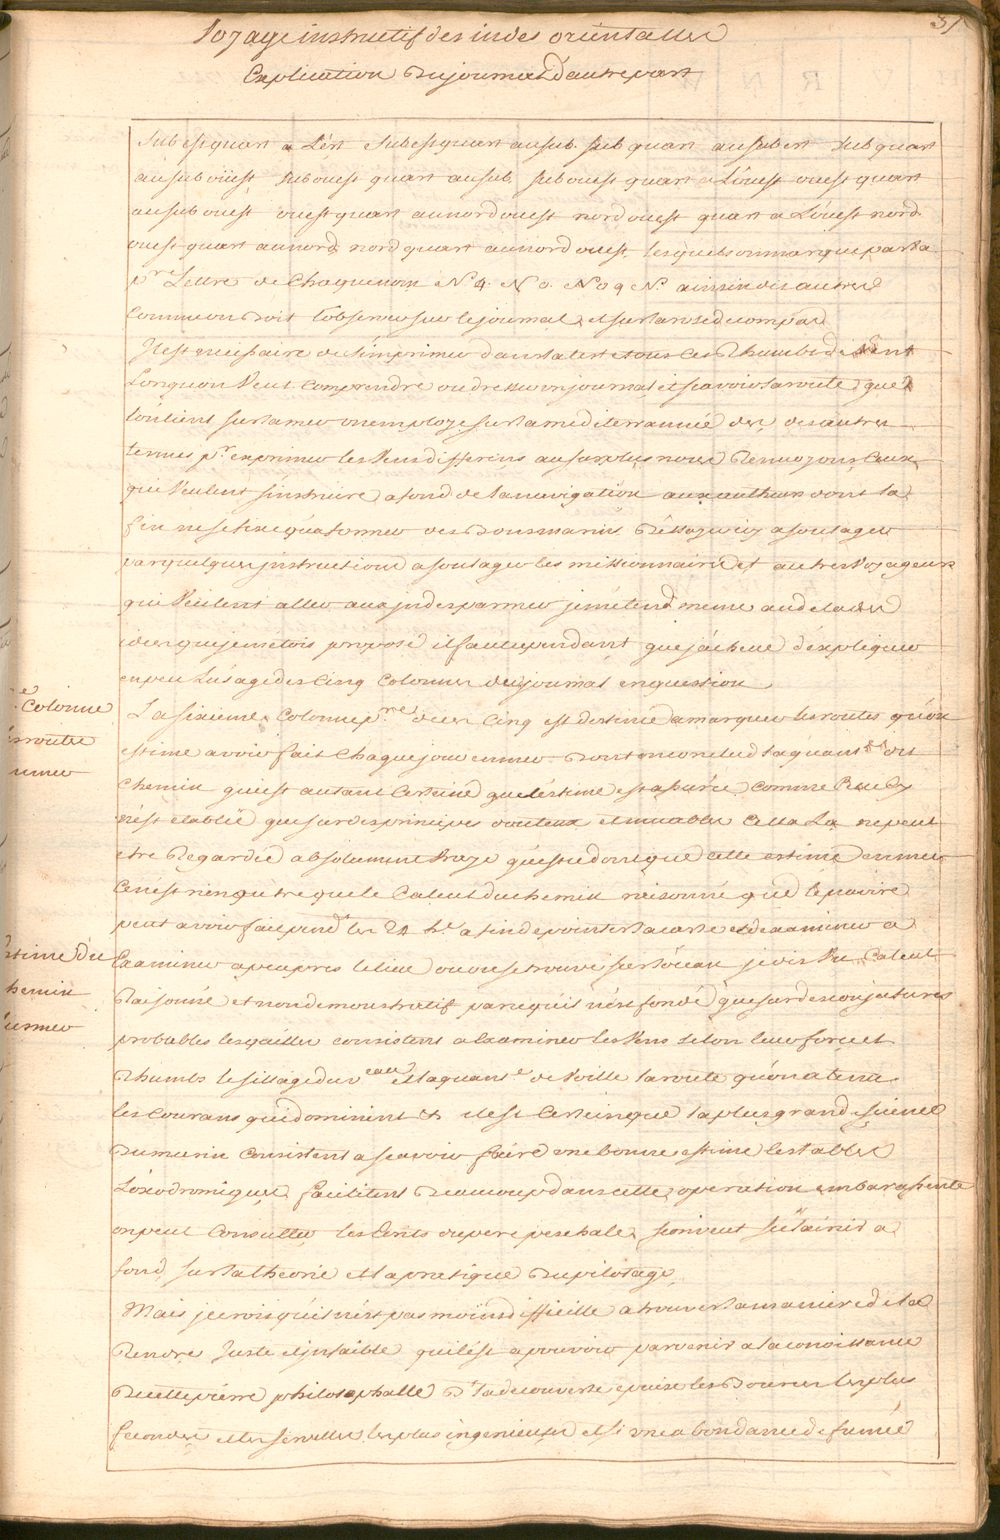 31
Voyage instructif des indes orientalles
Explication du journal d'autre part
Sud est quart a L'est Sud est quart au sud. Sud quart au sud est Sud quart
au sud oüest, sud ouest quart au sud, sud ouest quart a L'ouest ouest quart
au sud ouest ouest quart au nord ouest nord ouest quart a L'ouest nord
ouest quart au nord nord quart au nord ouest, lesquels on marque par la
p.re Lettre de Chaque nom N 4. N O. N O 4 N. ainsin des autres
Comme on doit l'observer sur le journal et sur la rose de compas
Il est necessaire de s'imprimer dans la teste tous Ces Rhumbs de vent
Lorsqu'on Veut Comprendre ou dresser un journal et sçavoir la route que
l'on tient sur la mer on employe sur la mediterrannée des autres
termes p.r exprimer les Vens differens au surplus nous Renvoyons Ceux
qui Veulent s'instruire a fond de la navigation aux autheurs dont la
fin ne se tire qu'a former des bons marins
par quelques instructions a soulager les missionnaires et autres Voyageurs
qui Veulent aller aux indes par mer je m'étend meme au dela des
idées que je m'etois proposé il faut cependant que j'acheve d'expliquer
en peu L'usage des Cinq Colonnes du journal en question
e Colonne
routes
en mer
La sixieme Colonne p.re des Cinq est destiné a marquer les routes qu'on
estime avoir fait Chaque jour en mer dont on conclud la quant.té du
Chemin qui est autant Certaine que l'estime est assurée Comme
n'est etablie que sur des principes douteux et muables Cella La ne peut
etre Regardée absolument vraye qu'est ce donc que cette estime en mer
Ce n'est rien qu'tre que le Calcul du chemin raisonné que le navire
peut avoir fait pend.t les 24 h.s afin de pointer la carte et de examiner a
Estime du
chemin
en mer
Examiner a peu pres le lieu ou on se trouve sur l'ocean je dis Un Calcul
Raisonné et non demonstratif parce qu'il n'est fondé que sur des conjectures
probables lesquelles consistent a Examiner les Vens selon leur force et
Rhumbs le sillage du v.eau et la quant.é de Voille la route qu'on a tenue
les Courans qui dominent & il est Certein que la plus grande sience
du marin Consistent a sçavoir faire une bonne estime les tables
Loxodromiques facilitent Beaucoup dans cette operation embarassente
on peut Consulter les Ecrits du pere peschales
fond sur la theorie et la pratique du pilotage
Mais je crois qu'il n'est pas moins difficille a trouver la maniere de la
Rendre Juste et infaible qu'il est a pouvoir parvenir a la conoissance
de cette pierre philosophalle La decouverte epuise les Bourses les plus
fecondes et les servelles les plus ingenieuses et si une abondance de fumée